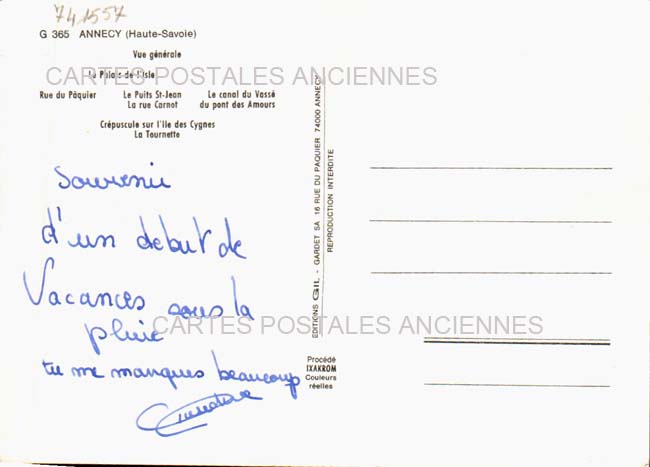 741557
G 365 ANNECY (Haute-Savoie)
Vue générale
Le Palais de l'Isle
CARTES POSTALES ANCIENNES
Rue du Pâquier Le Puits St-Jean Le canal du Vassé
La rue Carnot du pont des Amours
Crépuscule sur l'Ile des Cygnes
La Tournette
Souvenir
d'un debut de
Vacances sous la
pluie
CARTES POSTALES ANCIENNES
tu me manques beaucoup
EDITIONS GIL - GARDET SA 16 RUE DU PAQUIER 74000 ANNECY
REPRODUCTION INTERDITE
Procédé
IXAKROM
Couleurs
réelles